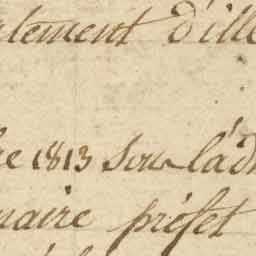 rtement d'ille
re 1813 Sous l'ad
naire préfet